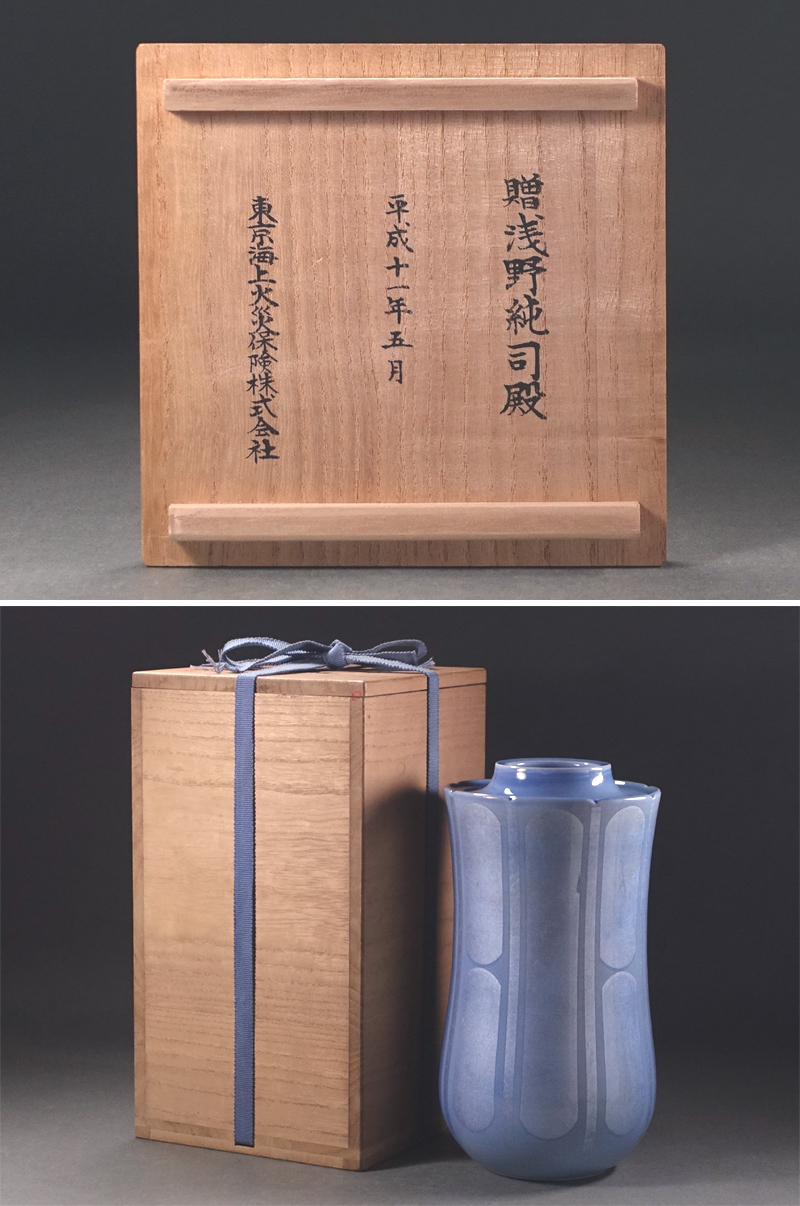 贈浅野純司殿
平成十一年五月
東京海上火災保険株式会社